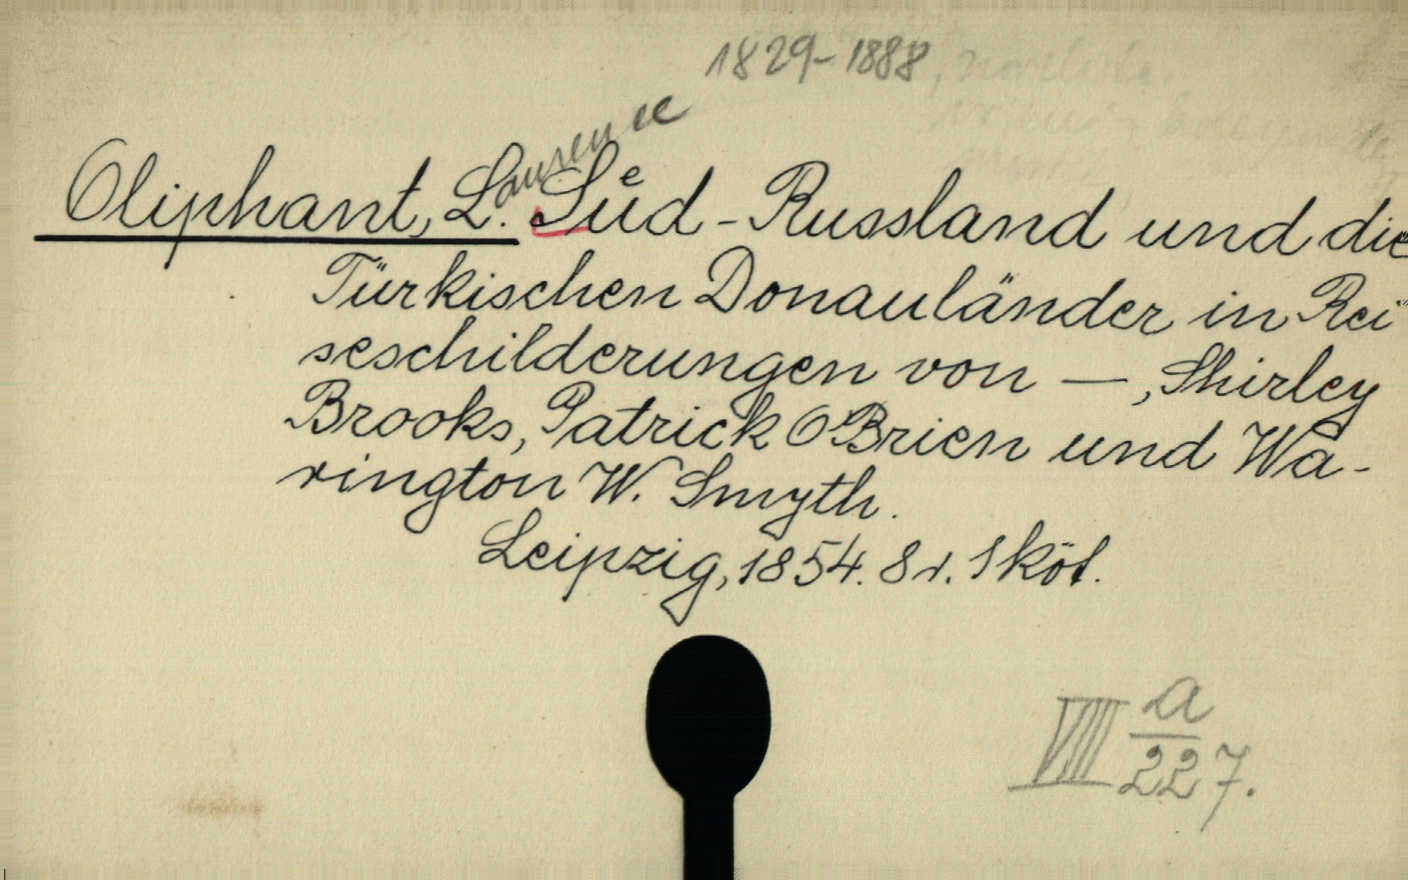 1829-1888
Oliphant, L. Laurence Süd-Russland und die
Türkischen Donauländer in Rei
seschilderungen von —, Shirley
Brooks, Patrick O'Brien und Wa-
rington W. Smyth.
Leipzig, 1854. 8r. 1 köt.
VIII a
227.